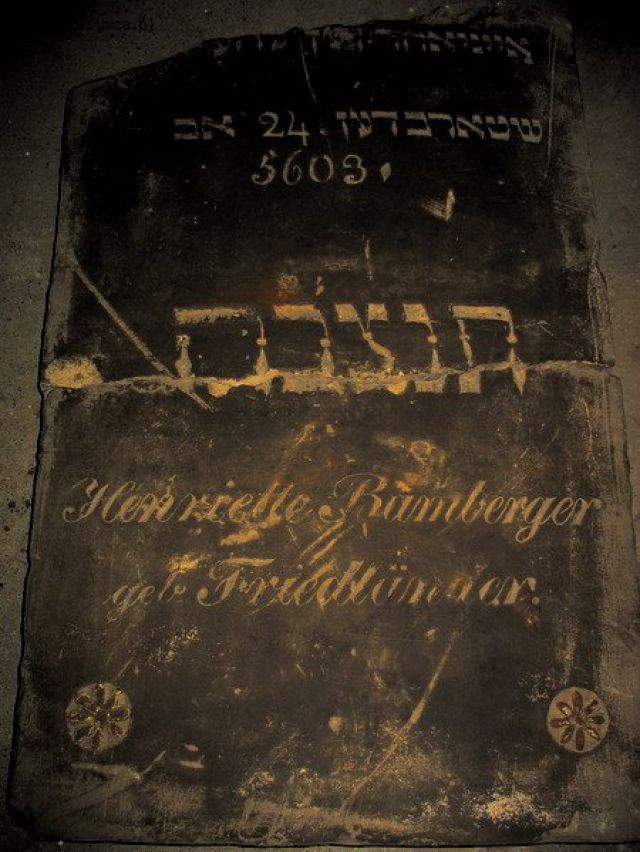 שטארב דען 24. אב
5603.
תנצבה
Henriette Bamberger
geb. Friedländer.